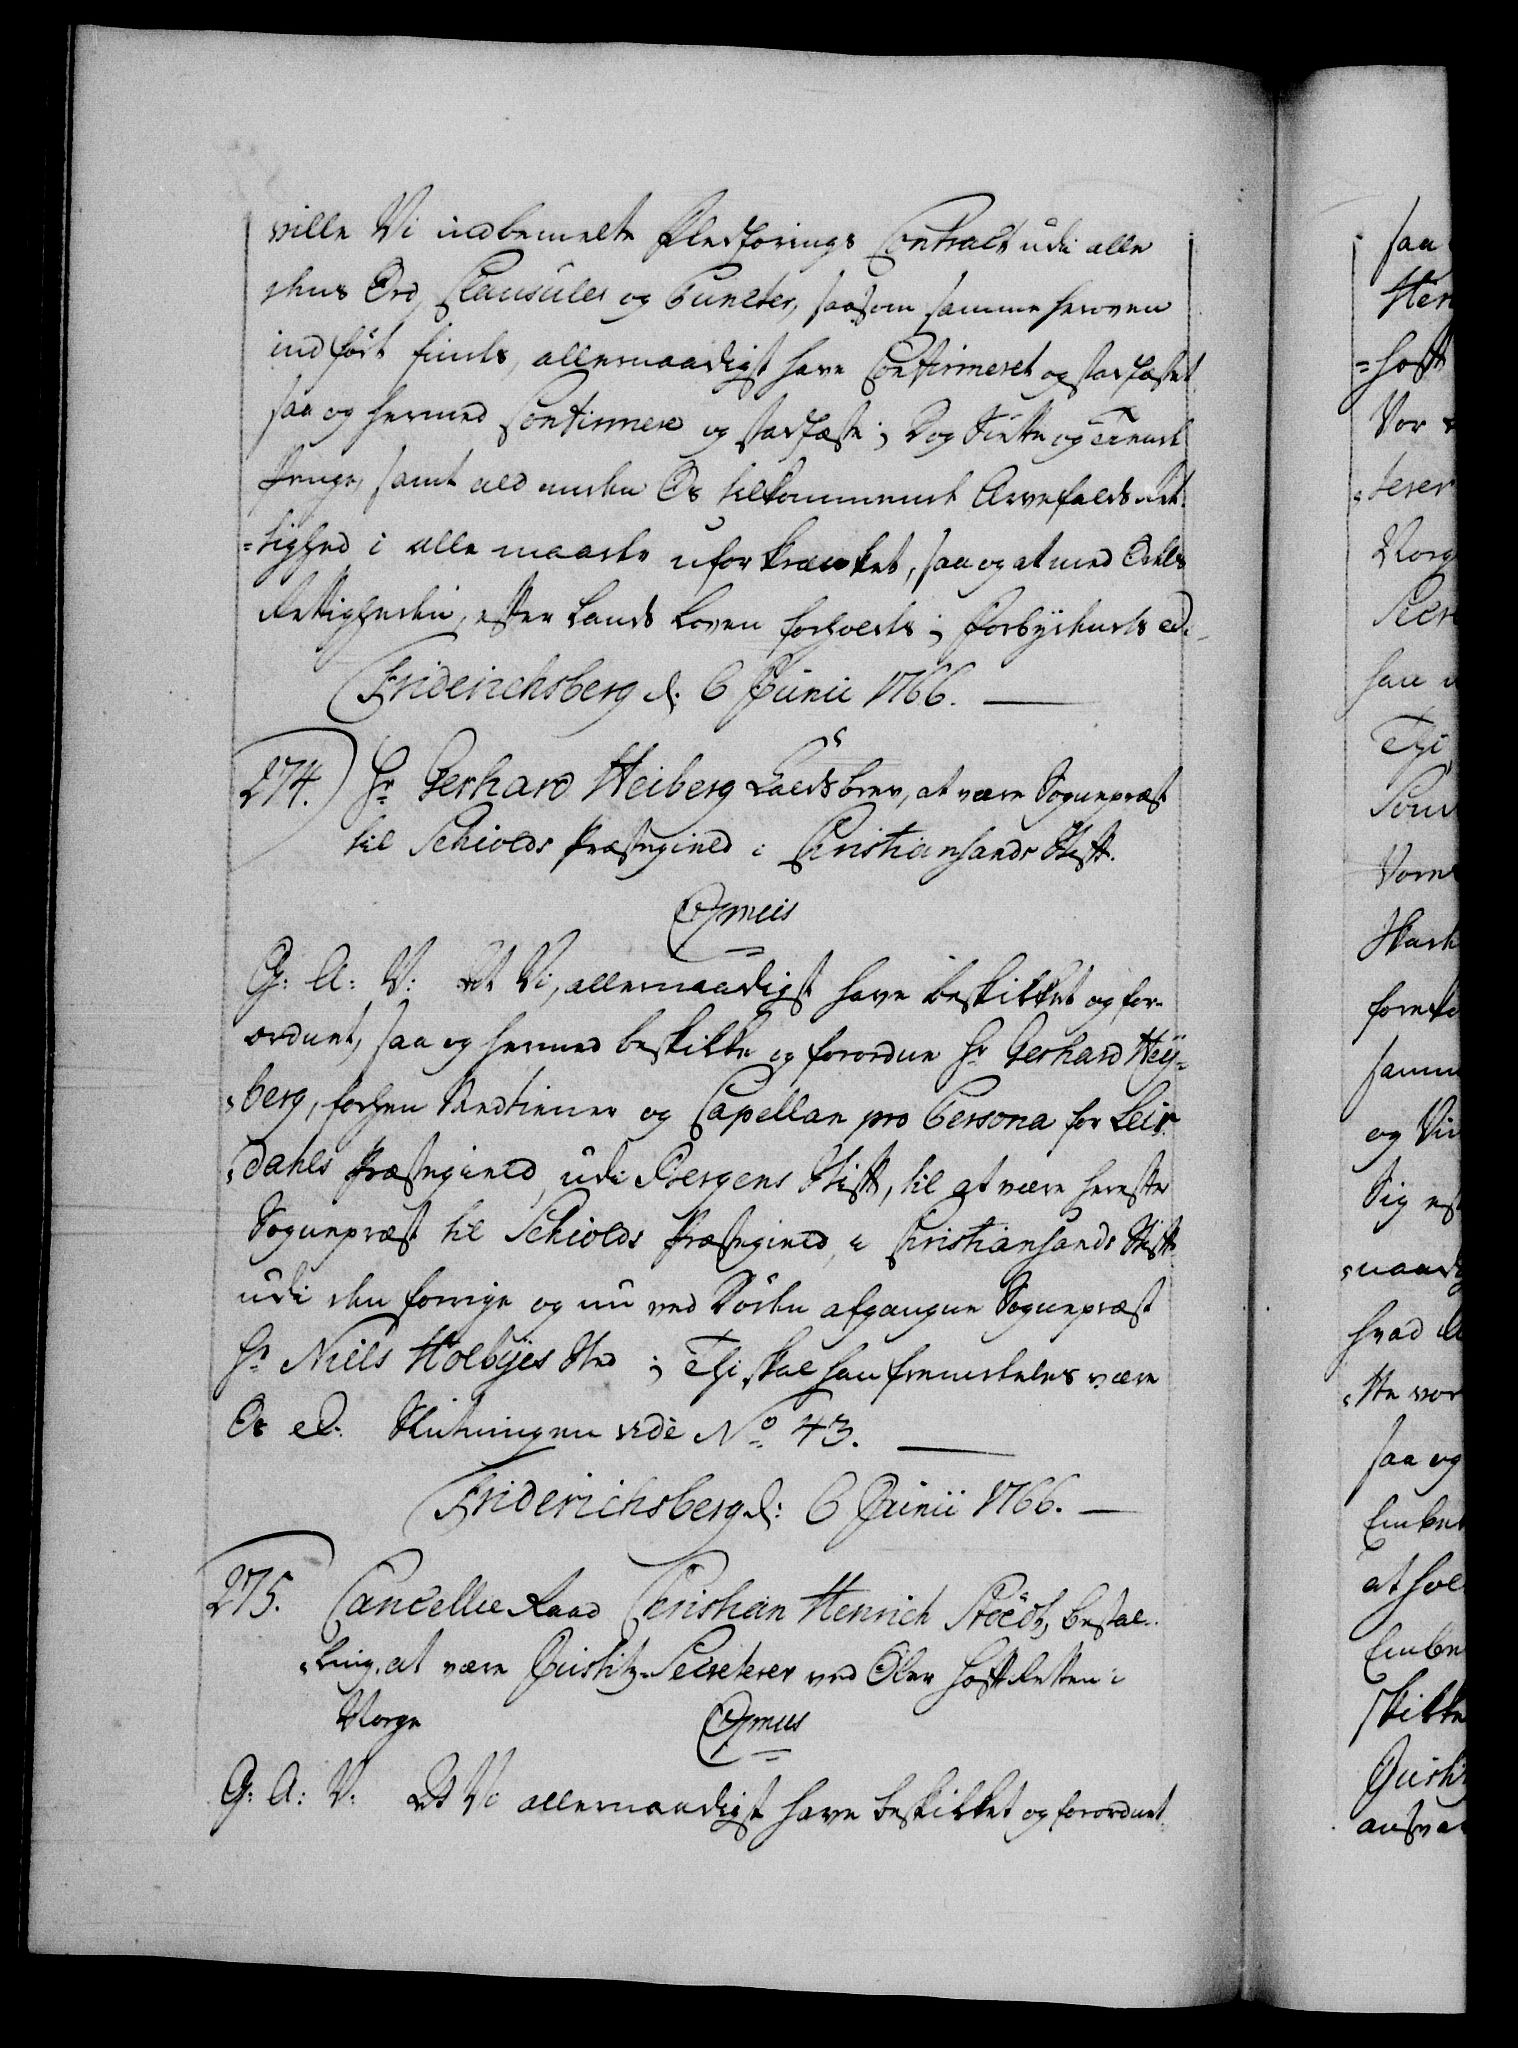 ville Vi indbemelte Fledførings Contract udi alle
dens Ord, Clausuler og Puncter, saasom samme heroven
indført findes, allernaadigst have Confirmeret og stadfæstet
saa og hermed Confirmere og stadfæste; Dog Siette og Tiende
Penge, samt ald anden Os tilkommende Arvefalds Ret-
=tighed i alle maader uforkrænket, saa og at med Odels
Rettigheden, efter Lands Loven forholdes; Forbydendes etc:
Friderichsberg d: 6 Junii 1766.
274. Hr Gerhard Heiberg Kaldsbrev, at være Sognepræst
til Schiolds Præstegield i Christiansands Stift.
G: A: V: At Vi, allernaadigst have beskikket og for-
ordnet, saa og hermed beskikke og forordne Hr Gerhard Hey-
=berg, forhen Medtiener og Capellan pro Persona for Leir-
=dahls Præstegield, udi Bergens Stift, til at være herefter
Sognepræst til Schiolds Præstegield, i Christiansands Stift
udi den forrige og nu ved Døden afgangne Sognepræst
Hr Niels Holbyes Sted; Thi skal han fremdeles være
Os etc: Slutningen vide No 43.
Friderichsberg d: 6 Junii 1766.
275. Cancellie Raad Christian Henrich bestal-
=ling, at være Justitz-Secreterer ved Over Hoff Retten i
Norge
G: A: V: At Vi allernaadigst have beskikket og forordnet